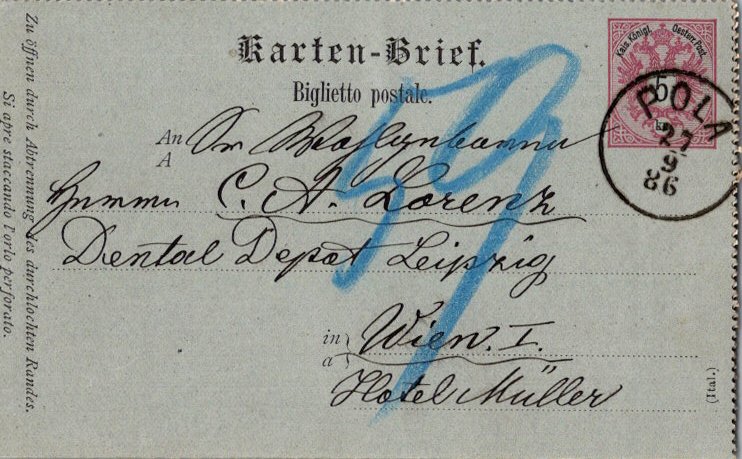 Karten-Brief.
Biglietto postale.
Kais. Königl. Oesterr. Post.
5 kr.
POLA
27
9
86
59
An
A
Sr Wohlgeboren
Herrn C. A. Lorenz
Dental Depot Leipzig
in
a
Wien. I.
Hotel Müller
(Ital.)
Zu öffnen durch Abtrennung des durchlochten Randes.
Si apre staccando l'orlo perforato.